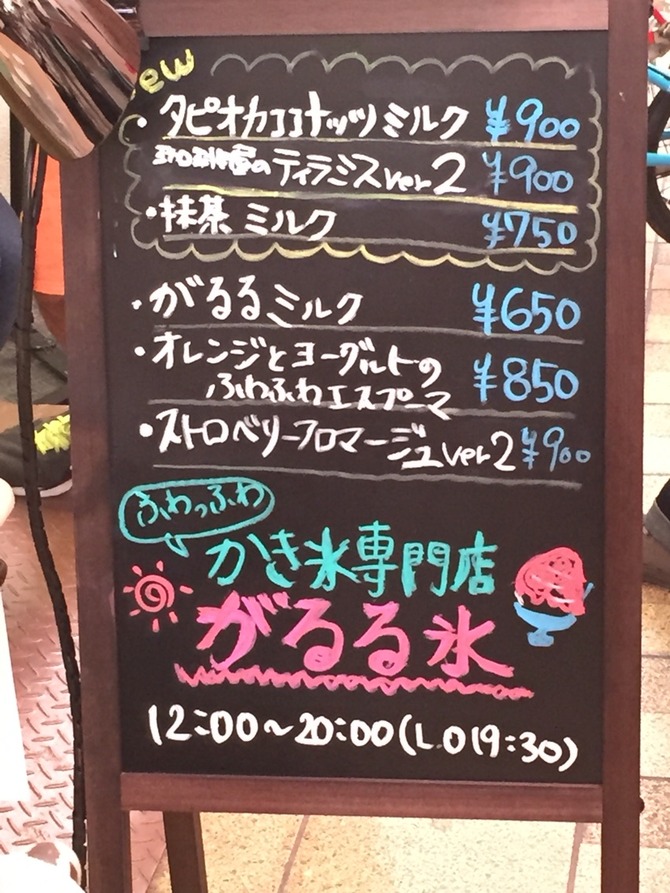 ew
・タピオカココナッツミルク ¥900
屋のティラミスver2 ¥900
・抹茶ミルク ¥750
・がるるミルク ¥650
・オレンジとヨーグルトの
ふわふわエスプーマ ¥850
・ストロベリーフロマージュver2 ¥900
ふわっふわ
かき氷専門店
がるる氷
12:00~20:00(L.O19:30)